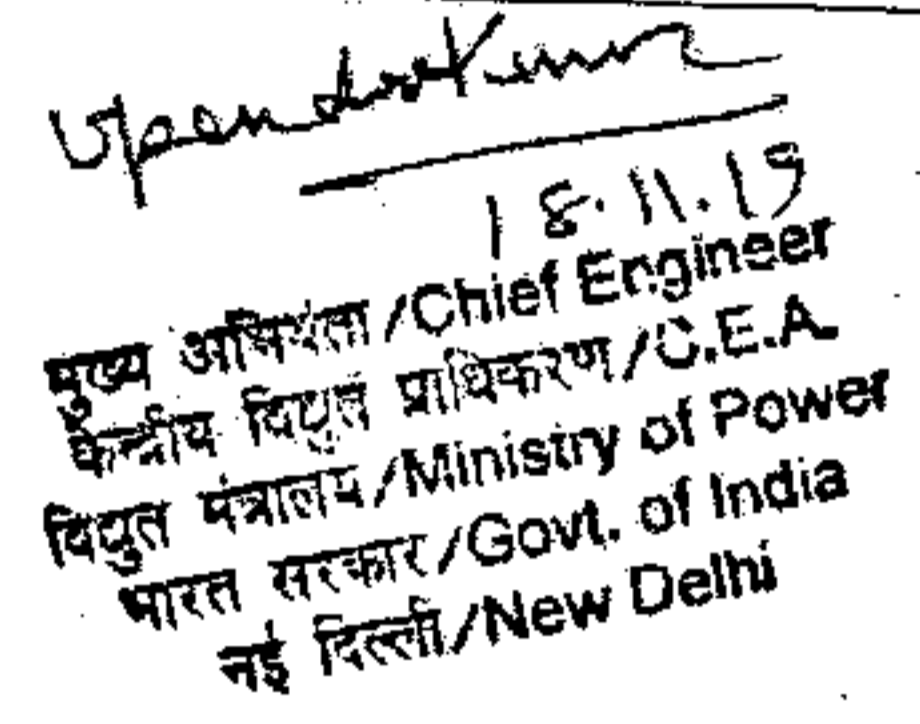 Upendra Kumar
18.11.19
मुख्य अभियंता/Chief Engineer
केन्द्रीय विद्युत प्राधिकरण/C.E.A.
विद्युत मंत्रालय/Ministry of Power
भारत सरकार/Govt. of India
नई दिल्ली/New Delhi